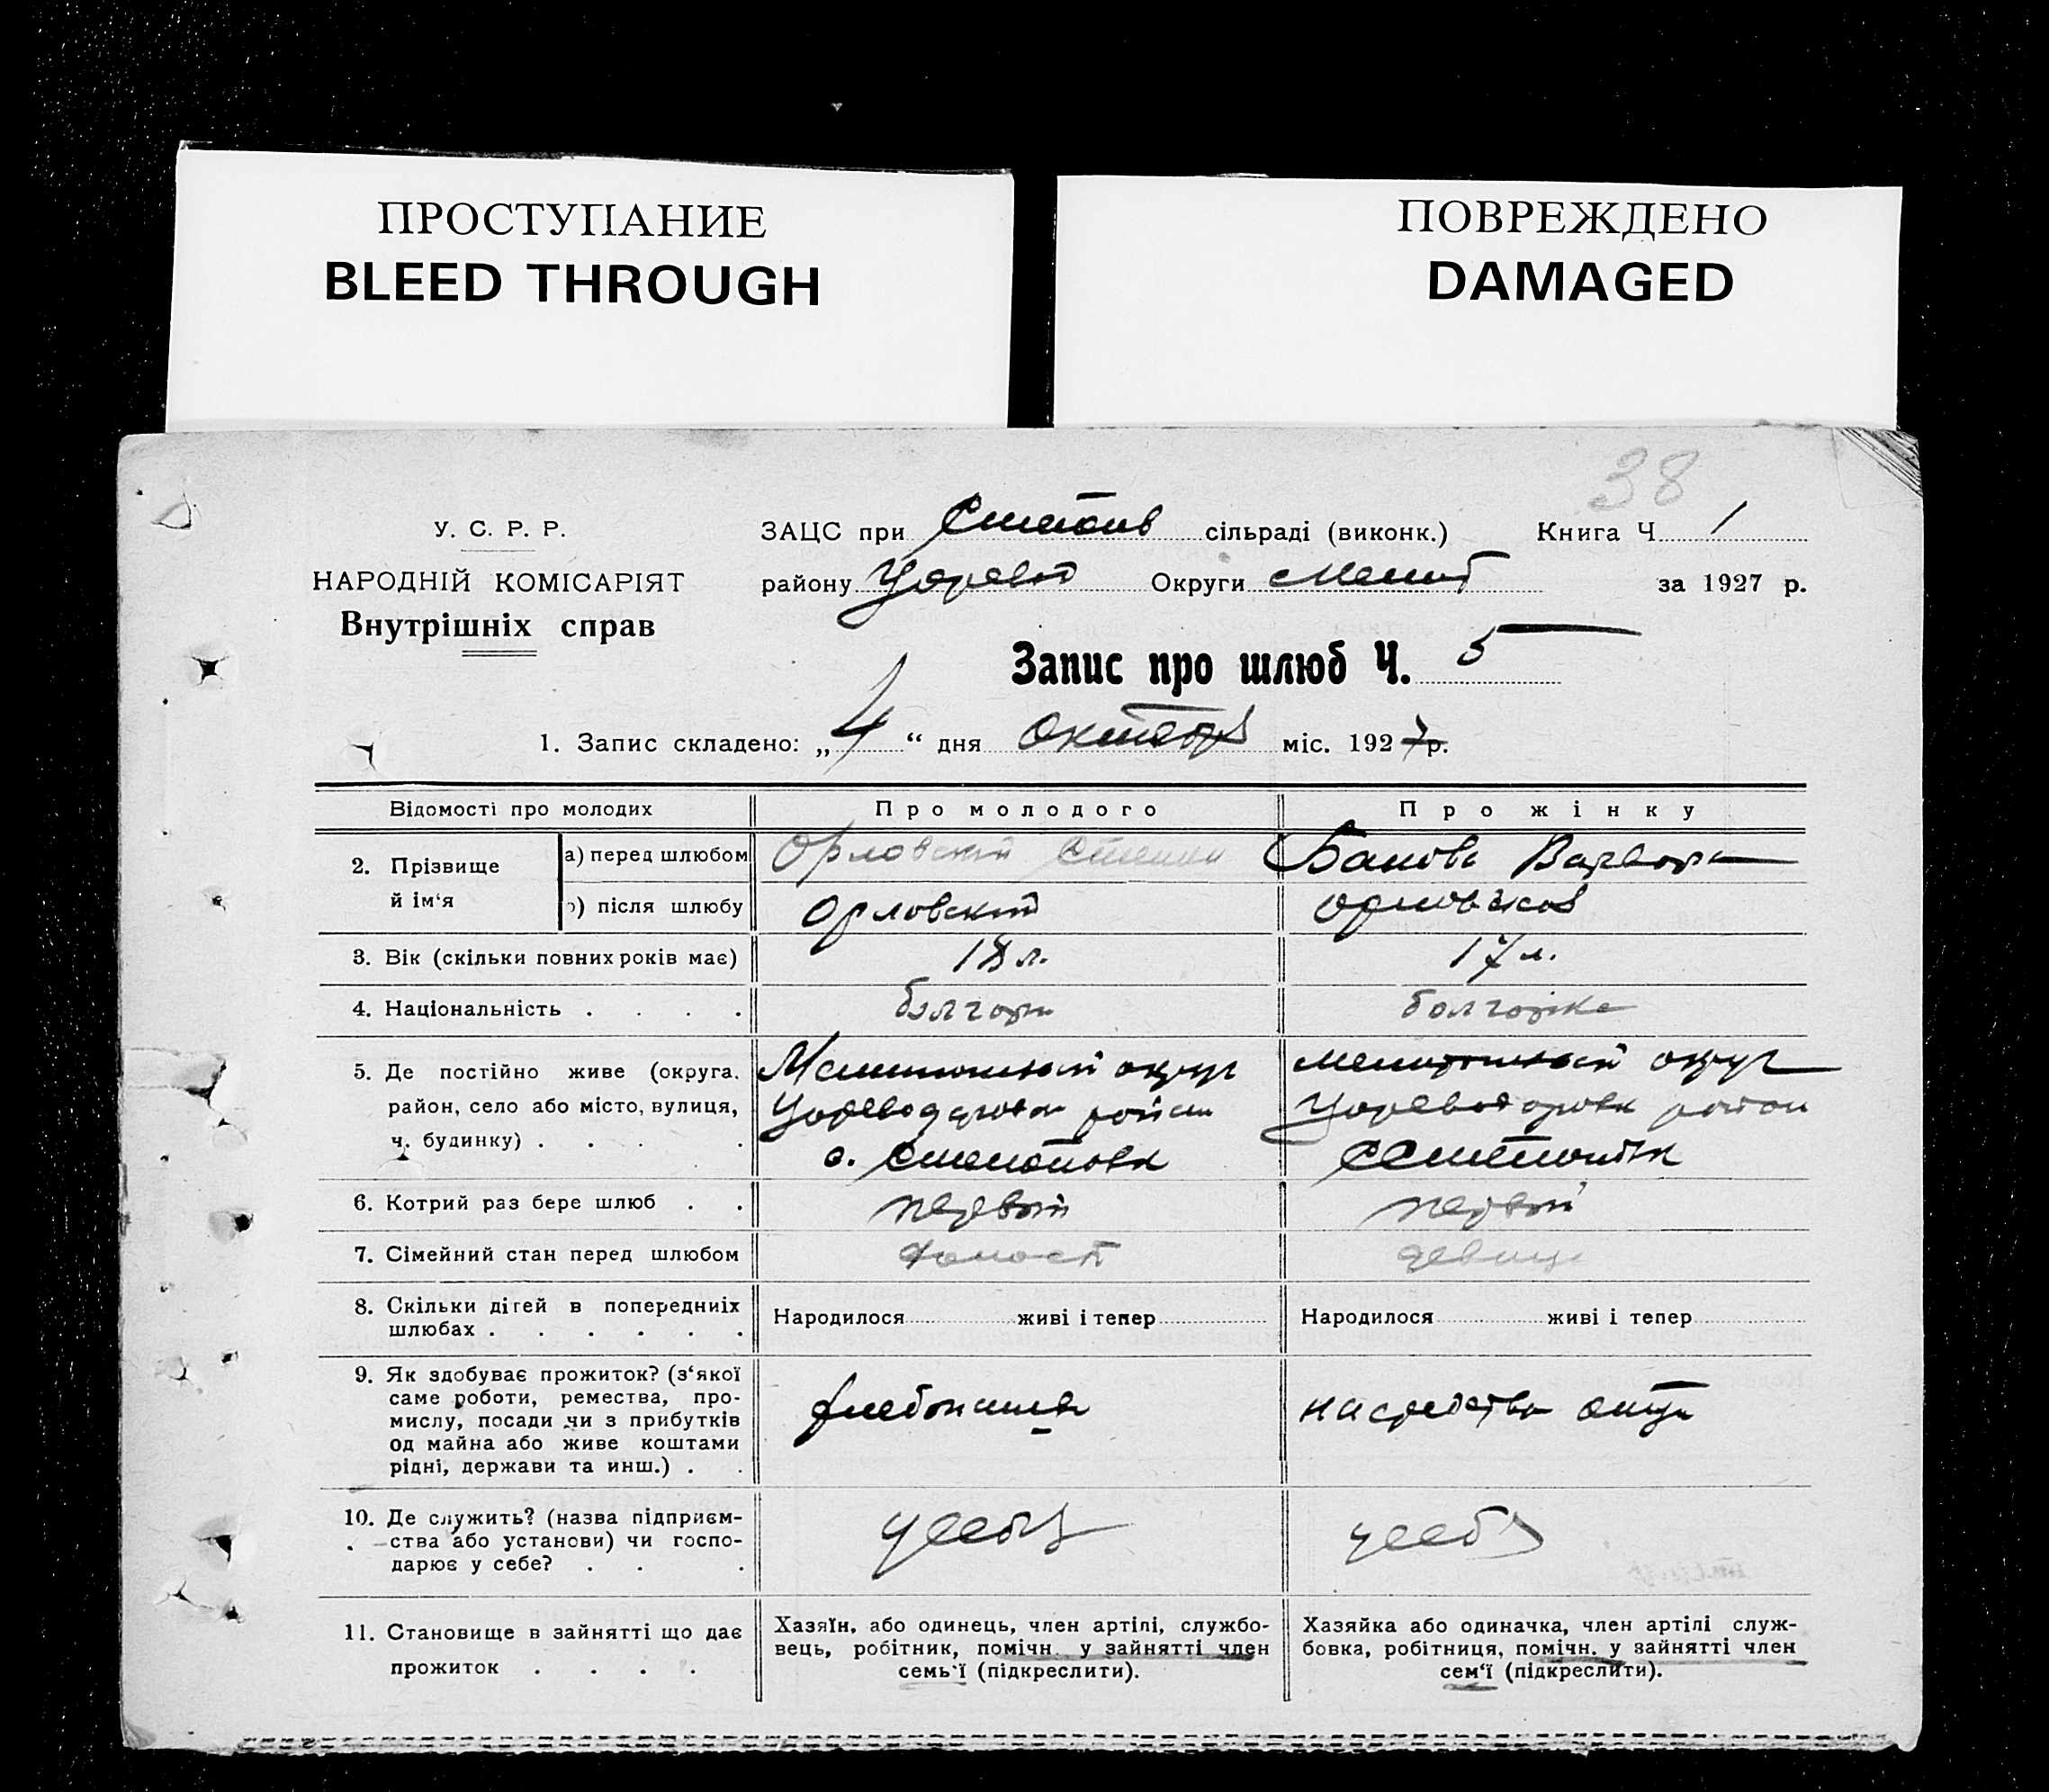 ПРОСТУПАНИЕ
BLEED THROUGH
ПОВРЕЖДЕНО
DAMAGED
38
У. С. Р. Р.
НАРОДНІЙ КОМІСАРІЯТ
Внутрішніх справ
ЗАЦС при Степов сільраді (виконк.) Книга Ч. 1
району Царев Округи Мелит за 1927 р.
Запис про шлюб Ч. 5
1. Запис складено: „4“ дня октября міс. 1927 р.
Відомості про молодих
Про молодого
Про жінку
2. Прізвище й ім‘я
а) перед шлюбом
Орловский Степан
Банова Варвара
б) після шлюбу
Орловский
Орловская
3. Вік (скільки повних років має)
18 л.
17 л.
4. Національність . . . .
болгарин
болгарка
5. Де постійно живе (округа, район, село або місто, вулиця, ч. будинку) . . . .
Мелитопольский округ
Цареводаровск район
с. Степановка
Мелитопольский округ
Цареводаровск район
с Степановка
6. Котрий раз бере шлюб . .
первый
первый
7. Сімейний стан перед шлюбом
холост
девица
8. Скільки дітей в попередниіх
шлюбах . . . . . .
Народилося живі і тепер
Народилося живі і тепер
9. Як здобуває прожиток? (з‘якої
саме роботи, ремества, про-
мислу, посади чи з прибутків
од майна або живе коштами
рідні, держави та инш.) . .
хлебопашец
на средства отца
10. Де служить? (назва підприєм-
ства або установи) чи госпо-
дарює у себе? . . .
у себя
у себя
11. Становище в зайнятті що дає
прожиток . . . .
Хазяїн, або одинець, член артілі, службо-
вець, робітник, помічн. у зайнятті член
семь‘ї (підкреслити).
Хазяйка або одиначка, член артілі служ-
бовка, робітниця, помічн. у зайнятті член
сем‘ї (підкреслити).